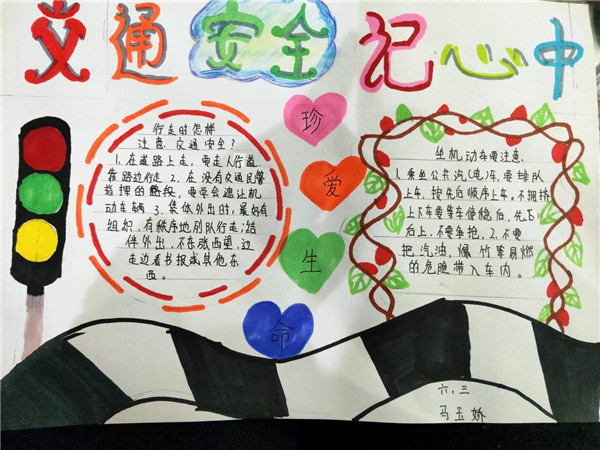 交通安全记心中
行走时怎样
注意交通安全？
1.在道路上走，要走人行道，
靠路边行走 2、在没有交通民警
指挥的路段，要学会避让机
动车辆 3、集体外出时，最好有
组织、有秩序地列队行走；结
伴外出，不东张西望，边
走边看书报或其他东
西。
珍
爱
生
命
坐机动车要注意.
1.乘坐公共汽(电)车，要排队
上车，按先后顺序上车。不拥挤
上下车要等车停稳后，先下
后上，不要争抢，2、不要
把汽油、爆竹等易燃
的危险带入车内。
六，三
马玉娇